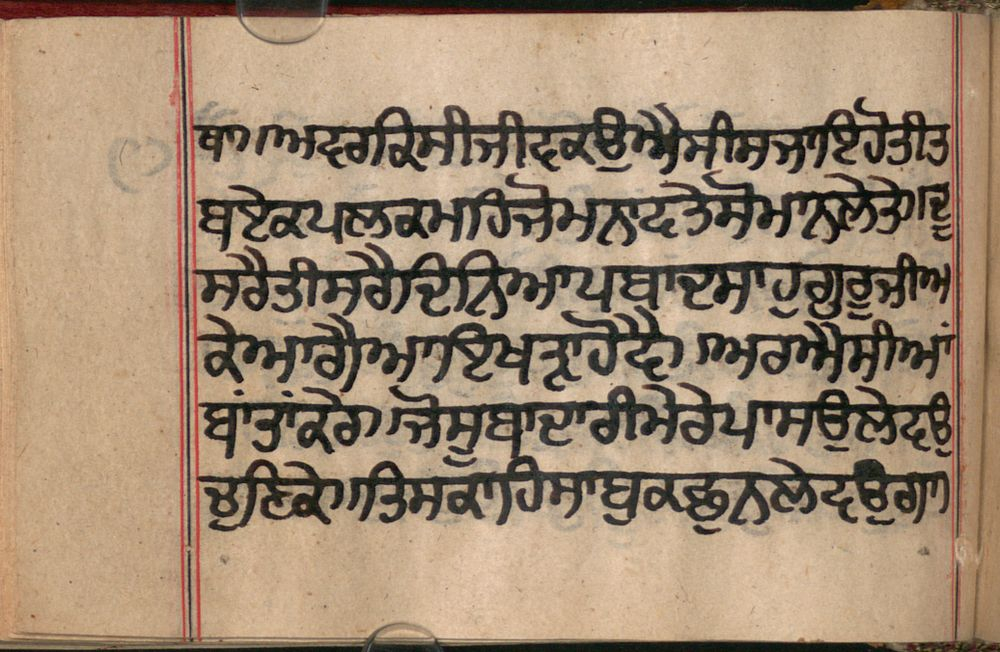 ਥਾ।ਅਦਰਕਿਸੀਜੀਦਕਉਐਸੀਸਜਾਇਹੋਤੀਤ
ਬਏਕਪਲਕਮਹਿਜੋਮਨਾਦਤੇਸੋਮਾਨਲੇਤੇ।ਦੂ
ਸਰੈਤੀਸਰੈਦਿਨਿਆਪਬਾਦਸਾਹੁਗੁਰੂਜੀਅ
ਕੇਆਗੈਆਇਖੜਾਹੋਦੈ।ਅਰਐਸੀਆਂ
ਬਾਂਤਾਂਕਰੇ।ਜੋਸੂਬਾਦਾਰੀਮੇਰੇਪਾਸਉਲੇਦਉ
ਚੁਣਿਕੇ।ਤਿਸਕਾਹਿਸਾਬੁਕਛੂਨਲੇਦਉਗਾ